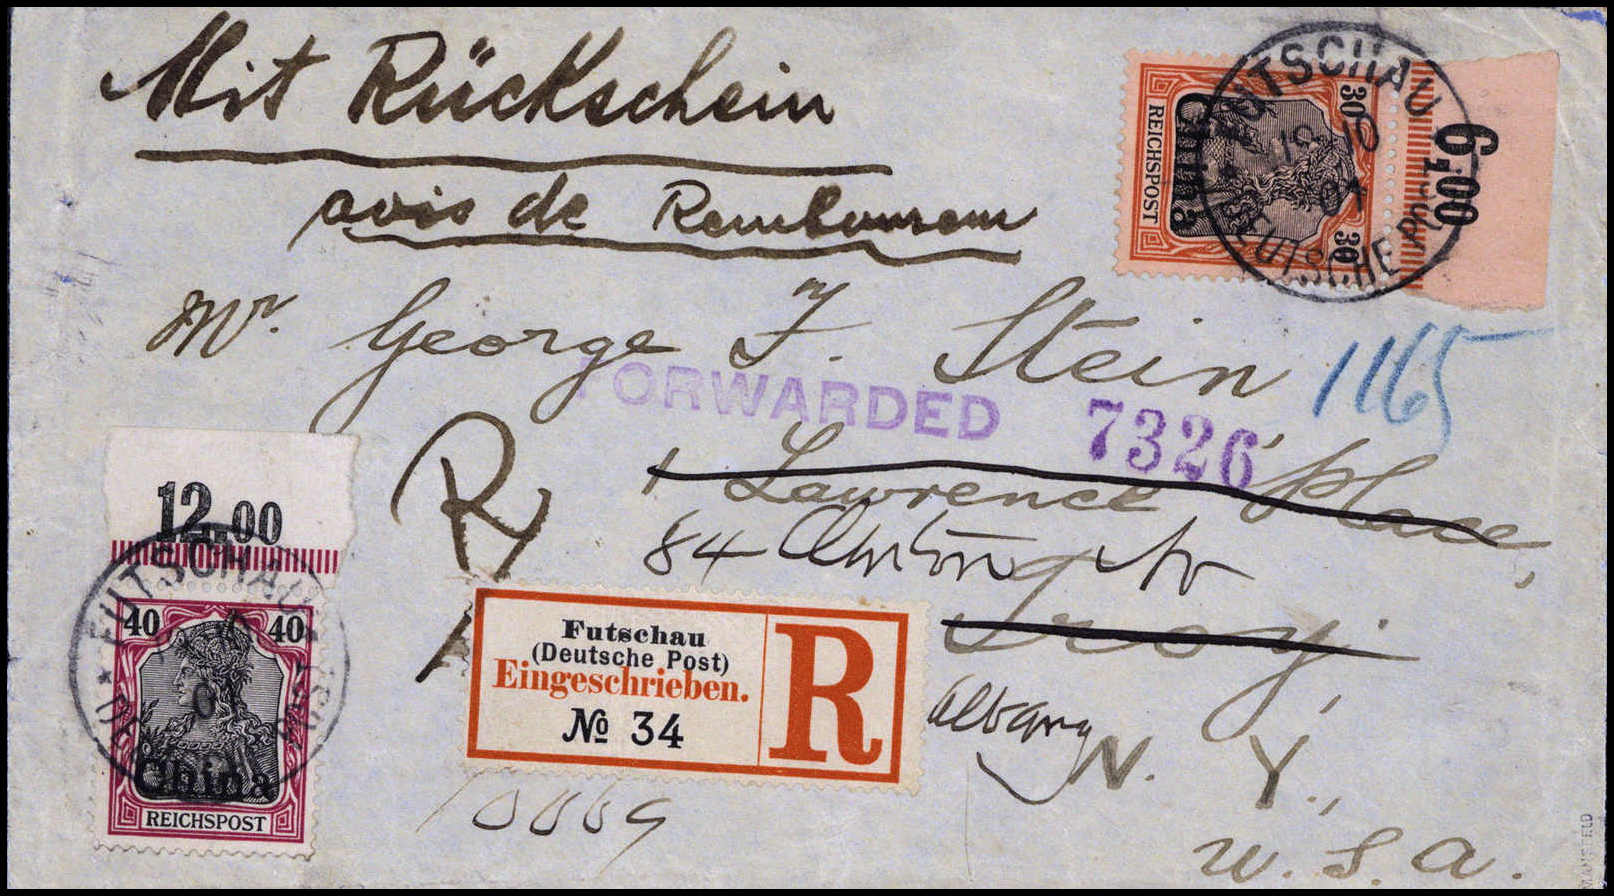 Mit Rückschein
avis de
Mr. George F. Stein
FORWARDED 7326
1165
1 Lawrence Place,
84
Troy,
Albany
N. Y.,
U. S. A.
R
Futschau
(Deutsche Post)
Eingeschrieben.
№ 34
R
30 30
China
REICHSPOST
6.00
FUTSCHAU
DEUTSCHE POST
12.00
FUTSCHAU
40 40
China
REICHSPOST
MANSFELD